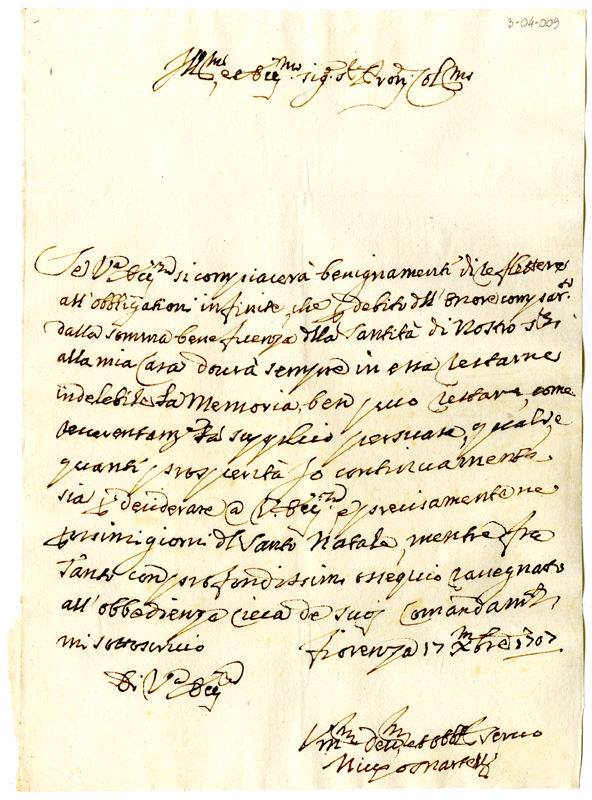 3-04-009
Ill.mo et Ecc.mo Sig.r Sig.r Pron Col.mo
Se V.a Ecc.za si compiacerà benignamente di reflettere
all'obbligationi infinite, che p debito dll'onore compart.o
dalla somma beneficenza dlla Santità di Nostro S.re
alla mia Casa dourà sempre in essa restarne
indelebile la Memoria, ben puo restare, come
reuerentem.te la supplico persuasa, quali, e
quanti prosperità Io continuamente
sia p desiderare a V. Ecc.za e precisamente ne
prossimi giorni dl Santo Natale, mentre fra
tanto con profondissimo ossequio rassegnato
all'obbedienza cieca de suoi Comandam.ti
mi sottoscriuo
fiorenza 17 Xbre 1707
Di V.a Ecc.za
Um.mo deu.mo et obbl. seruo
Martelli